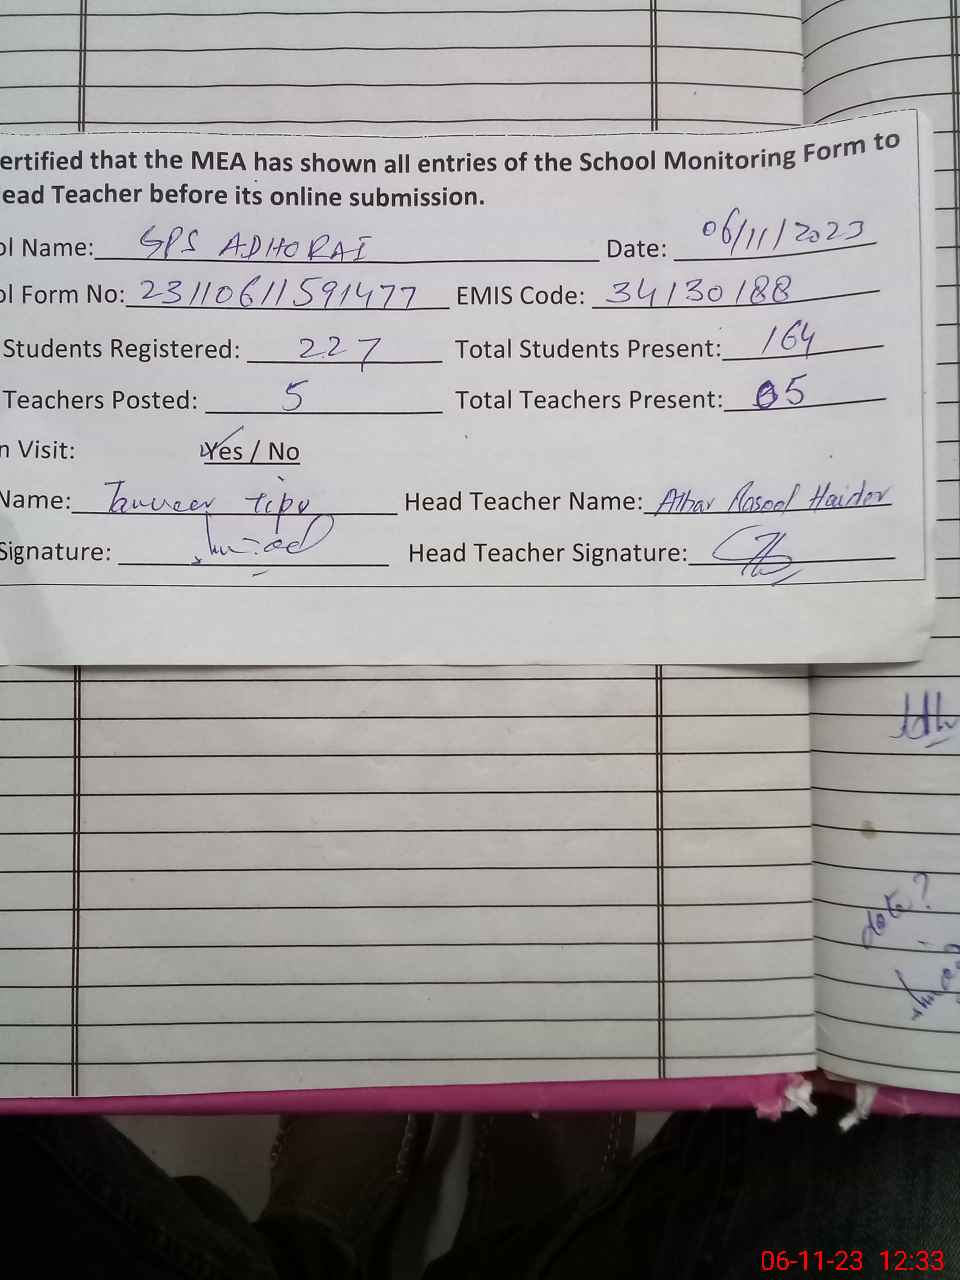 ertified that the MEA has shown all entries of the School Monitoring Form to
ead Teacher before its online submission.
ol Name: GPS ADHORAI Date: 06/11/2023
ol Form No: 23110611591477 EMIS Code: 34130188
Students Registered: 227 Total Students Present: 164
Teachers Posted: 5 Total Teachers Present: 05
n Visit: Yes / No
Name: Tanveer tipu Head Teacher Name: Athar Rasool Haider
Signature: Head Teacher Signature:
date?
06-11-23 12:33